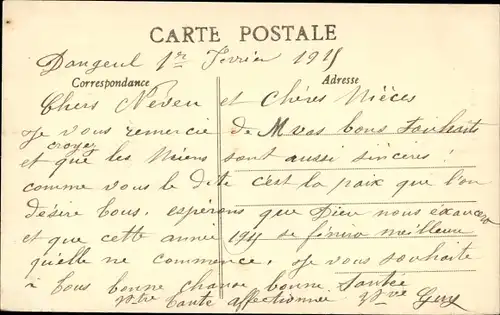 CARTE POSTALE
Dangeul 1er Février 1915
Correspondance Adresse
Chers Neveu et Chères Nièces
Je vous remercie de vos bons souhaits
croyez
et que les Miens sont aussi sincères !
comme vous le dite c'est la paix que l'on
désire tous. espérons que Dieu nous éxaucera
et que cette année 1915 se finira meilleur
qu'elle ne commence. Je vous souhaite
à tous bonne chance bonne Santée
Votre tante affectionnée Vve Guy